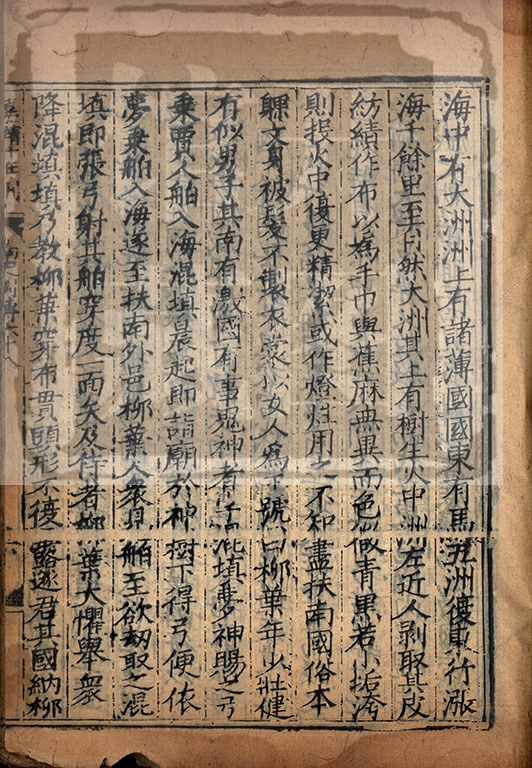 海中有大洲洲上有諸薄國國東有馬五洲復東行漲
海千餘里至自然大洲其上有樹生火中洲左近人剥取其皮
紡績作布以為手巾與蕉麻無異而色微青黒若小垢洿
則投火中復更精潔或作燈炷用之不知盡扶南國俗本
躶文身被髮不製衣裳以女人為王號曰柳葉年少壯健
有似男子其南有激國有事鬼神者字混填夢神賜之弓
乗賈人舶入海混填晨起即詣廟於神樹下得弓便依
夢乗舶入海遂至扶南外邑柳葉人衆見舶至欲劫取之混
填即張弓射其舶穿度一面矢及侍者柳葉大懼舉衆
降混填填乃教柳葉穿布貫頭形不復露遂君其國納柳